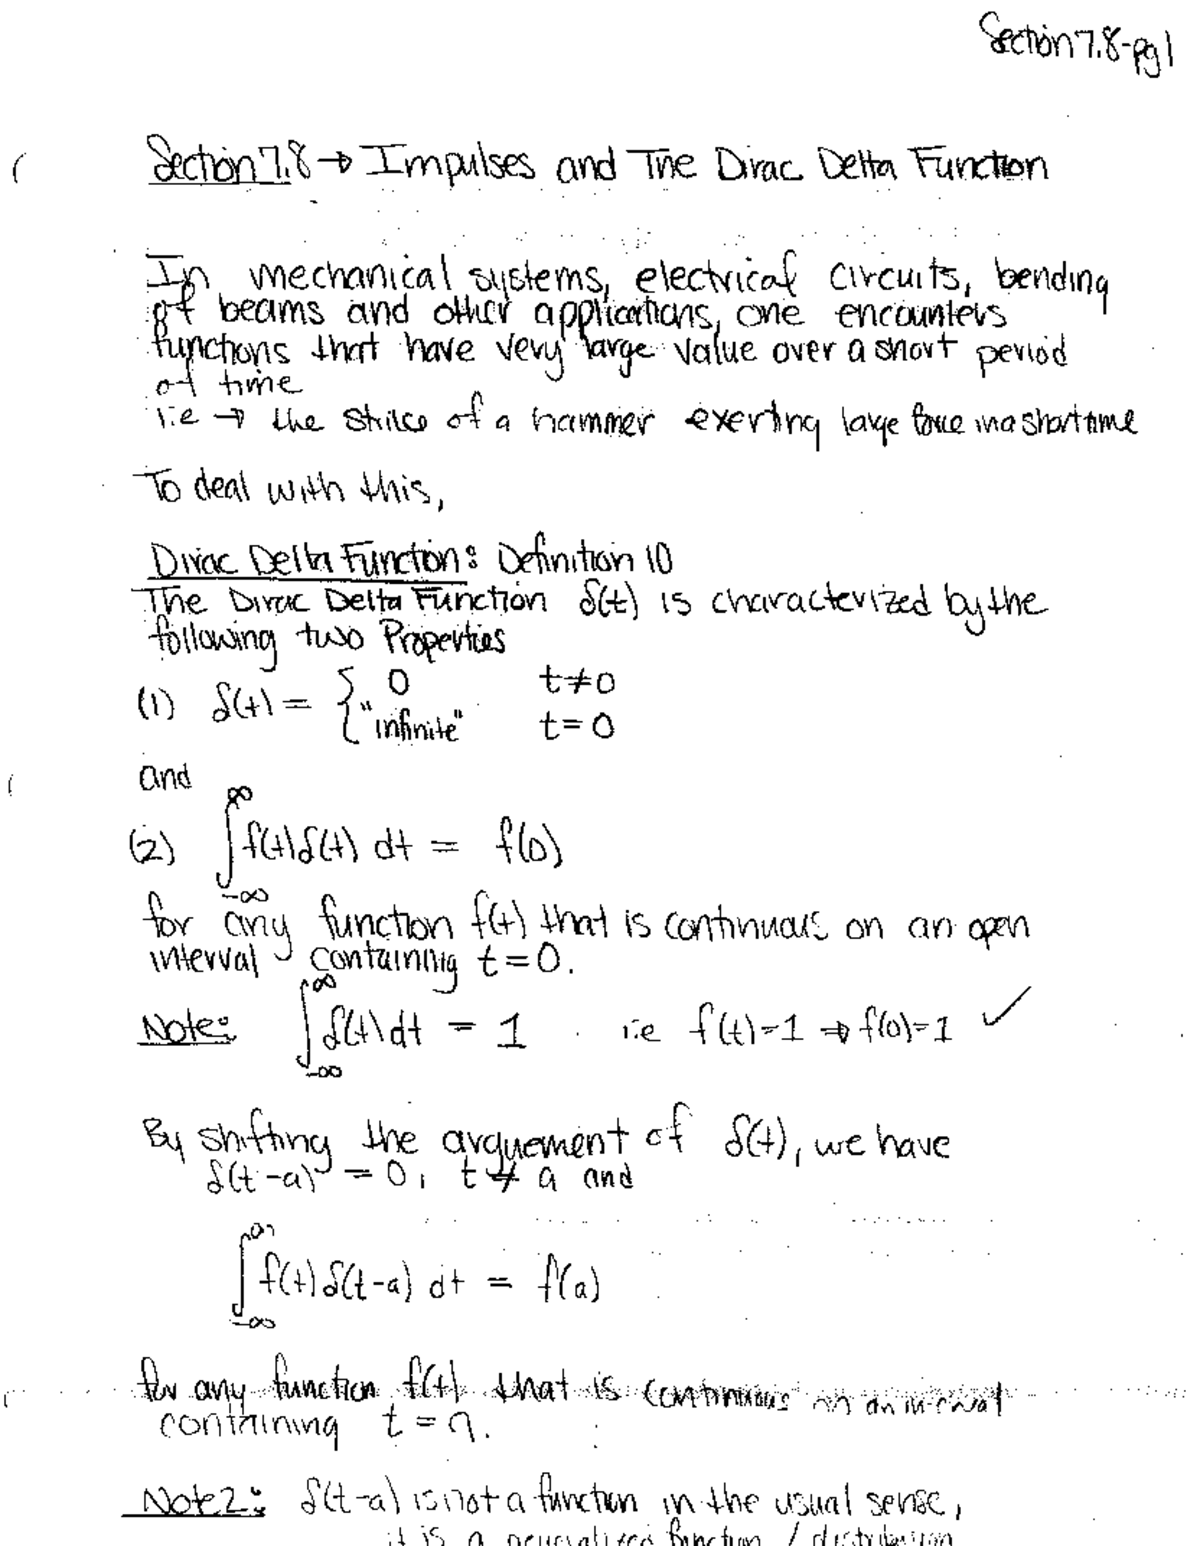 Section 7.8-pg 1
Section 7.8 → Impulses and The Dirac Delta Function
In mechanical systems, electrical circuits, bending
of beams and other applications, one encounters
functions that have very large value over a short period
of time
i.e → the strike of a hammer exerting large force in a short time
To deal with this,
Dirac Delta Function: Definition 10
The Dirac Delta Function δ(t) is characterized by the
following two Properties
(1) δ(t) = { 0 t≠0
"infinite" t=0
and
(2) ∫_{-∞}^{∞} f(t)δ(t) dt = f(0)
for any function f(t) that is continuous on an open
interval containing t=0.
Note: ∫_{-∞}^{∞} δ(t)dt = 1 i.e f(t)=1 ⇒ f(0)=1 ✓
By shifting the arguement of δ(t), we have
δ(t-a) = 0, t ≠ a and
∫_{-∞}^{∞} f(t)δ(t-a) dt = f(a)
for any function f(t) that is continuous on an interval
containing t = a.
Note 2: δ(t-a) is not a function in the usual sense,
it is a generalized function / distribution